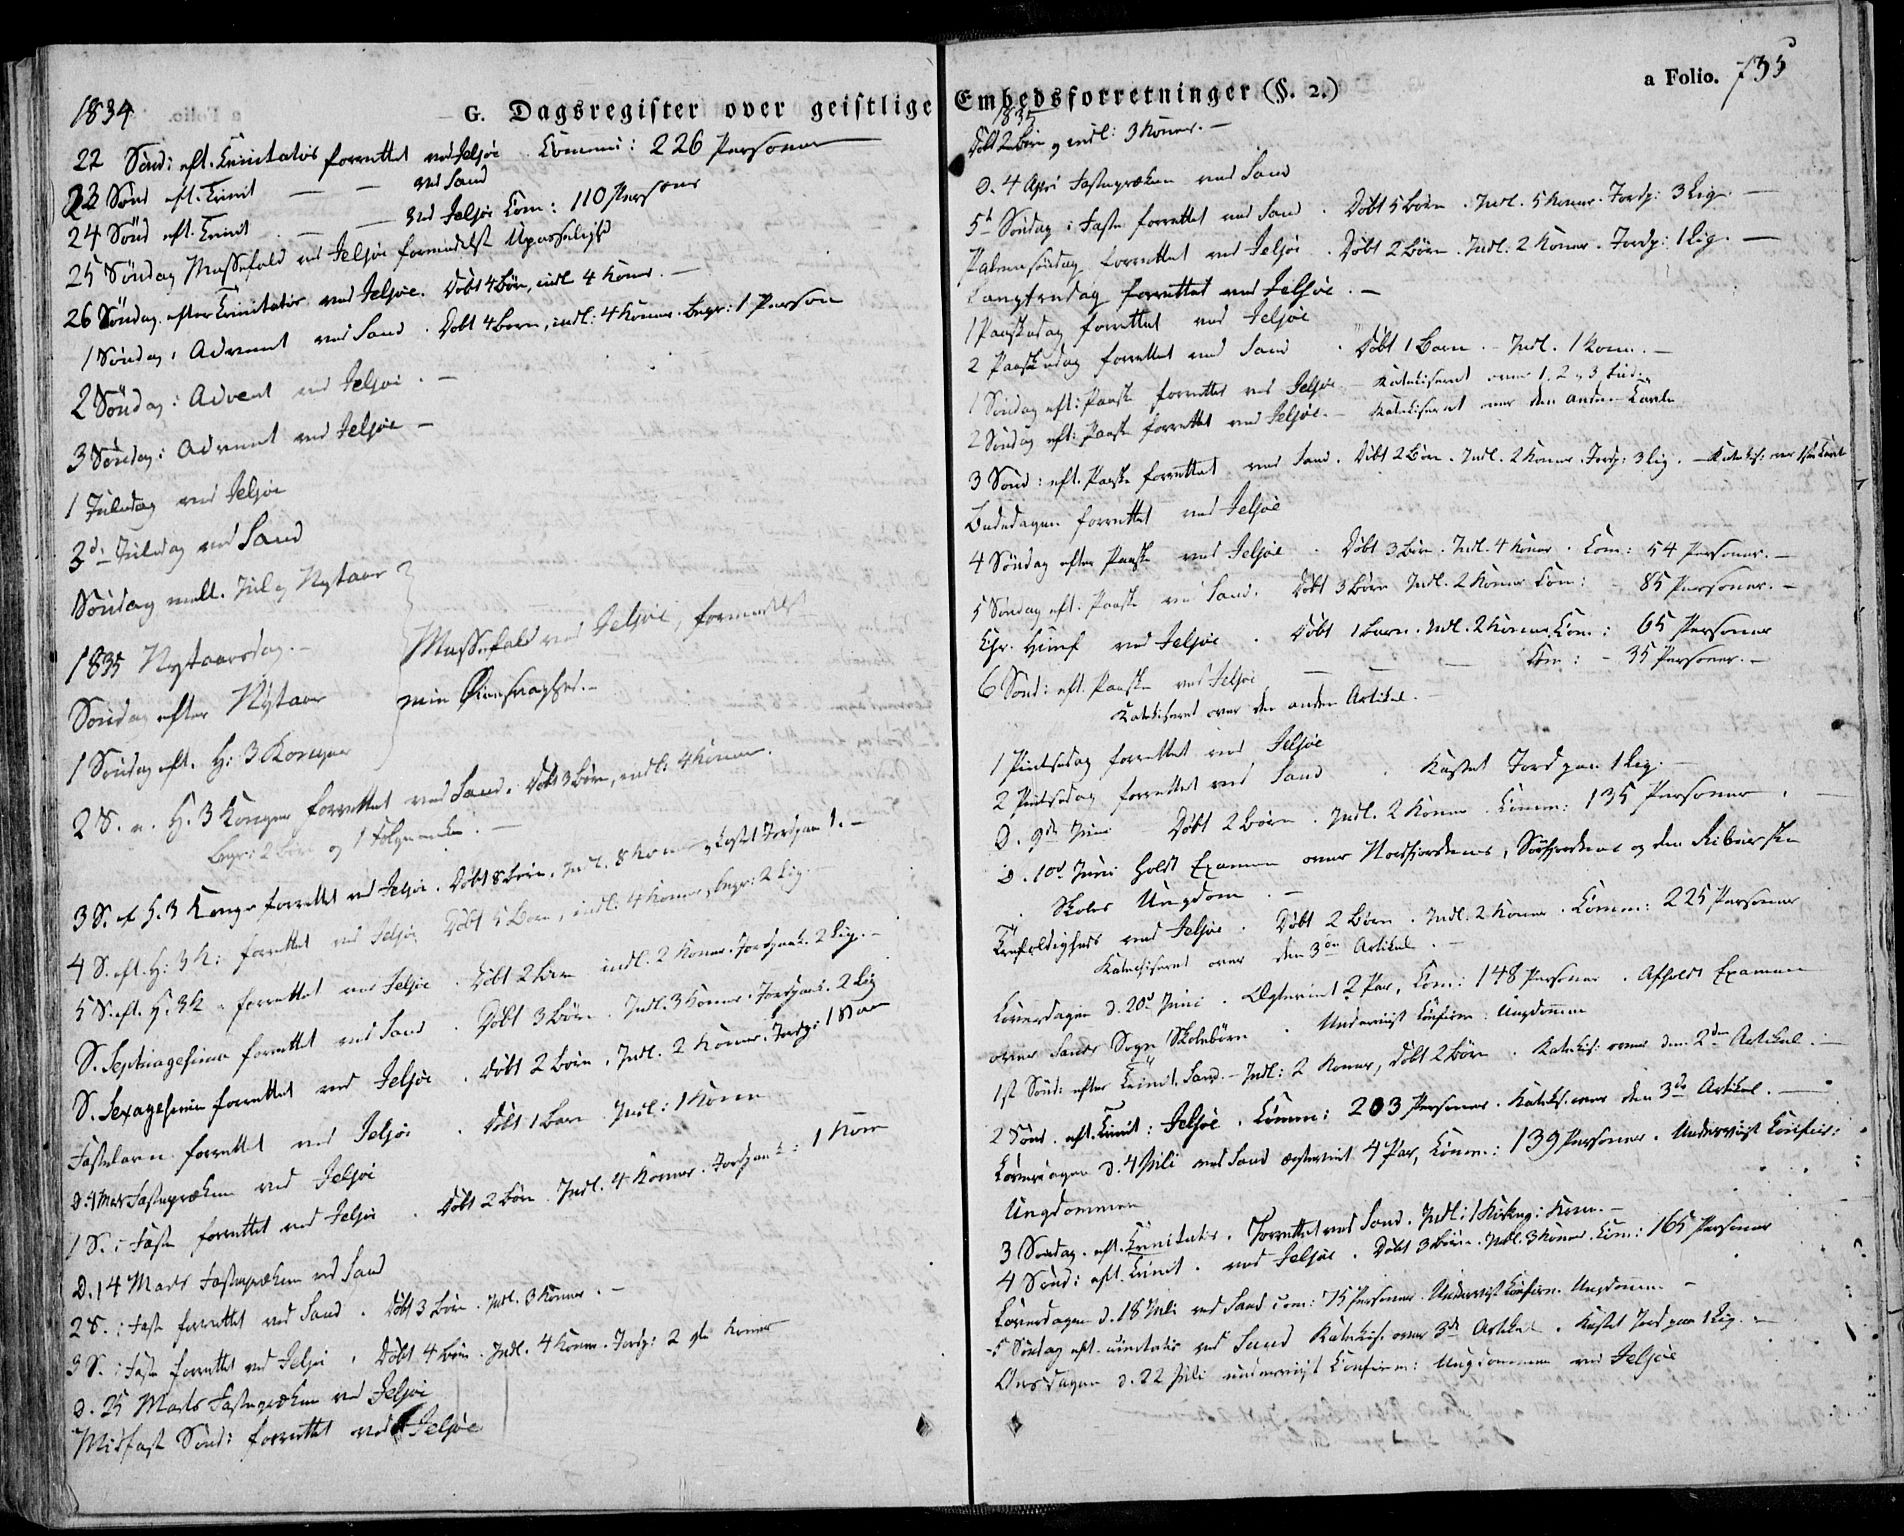 1834
G. Dagsregister over geistlige
22 Sönd: eft. Trinitatis forrettet ved Jelsøe. Commu: 226 Personer
23 Sönd eft. Trinit — — ved Sand
24 Sönd eft. Trinit — — ved Jelsøe Com: 110 Personer
25 Söndag Messefald ved Jelsøe formedelst Upasselighed
26 Söndag efter Trinitatis ved Jelsøe. Døbt 4 Börn, indl 4 Koner. —
1 Söndag i Advent ved Sand. Döbt 4 Børn, indl: 4 Koner. Begr: 1 Person
2 Söndag i Advent ved Jelsøe. —
3 Söndag i Advent ved Jelsøe —
1 Juledag ved Jelsøe
2d Juledag ved Sand
Söndag mell. Jul og Nytaar
1835 Nytaarsdag. — Messefald ved Jelsøe, formedelst
Söndag efter Nytaar min Øiensvaghed. —
1 Söndag eft. H: 3 Konger
2 S. e. H. 3 Konger forrettet ved Sand. Døbt 3 Börn, indl: 4 Koner.
Begr: 2 Börn og 1
3 S. ef H. 3 Konger forrettet ved Jelsøe. Døbt 8 Börn. Indl. 8 Koner, Kastet Jord paa 1. —
4 S. eft. H: 3 K: forrettet ved Jelsøe Døbt 5 Børn, indl: 4 Koner, begr: 2 Lig.
5 S. eft. H: 3 K. forrettet ved Jelsøe. Døbt 2 Børn indl. 2 Koner. Jordpaak. 2 Lig. —
S. Septuagesima forrettet ved Sand. Døbt 3 Börn. Indl. 3 Koner. Jordpaak. 2 Lig
S. Sexagesima forrettet ved Jelsøe. Døbt 2 Börn, Indl. 2 Koner. Jordp: 1
Fastelavn forrettet ved Jelsøe. Døbt 1 Barn Indl: 1 Kone
Fasteprædken ved Jelsøe
1 S. i Faste forrettet ved Jelsøe. Døbt 2 Börn. Indl. 4 Koner. Jordpaak: 1 Kone
D. 14 Marts Fasteprædken ved Sand
2 S. i Faste forrettet ved Sand. Døbt 3 Börn. Indl. 3 Koner. —
3 S. i Faste forrettet ved Jelsøe. Døbt 4 Börn. Indl. 4 Koner. Jordp: 2 Koner
D. 25 Marts Fasteprædken ved Jelsøe
Midfaste Sönd: forrettet ved Jelsøe
Embedsforretninger (§. 2.)
a Folio. 735
1835
Døbt 2 Börn og indl: 3 Koner. —
D. 4 April Fasteprædken ved Sand
5t Söndag i Faste forrettet ved Sand. Døbt 5 Börn. Indl. 5 Koner. Jordp: 3 Lig. —
Palmesöndag forrettet ved Jelsøe. Døbt 2 Börn. Indl. 2 Koner. Jordp: 1 Lig. —
Langfredag forrettet ved Jelsøe. —
1 Paaskedag forrettet ved Jelsøe
2 Paaskedag forrettet ved Sand. Døbt 1 Barn. — Indl. 1 Kone. —
1 Söndag eft: Paaske forrettet ved Jelsøe — Katekiseret over 1. 2 og 3 Bud.
2 Söndag eft: Paaske forrettet ved Jelsøe. — Katekiseret over den anden Tavle
3 Sönd: eft. Paaske forrettet ved Sand. Døbt 2 Börn. Indl. 2 Koner. Jordp: 3 Lig. — Katekis: over
Bededagen forrettet ved Jelsøe
4 Söndag efter Paaske ved Jelsøe. Døbt 3 Börn. Indl. 4 Koner. Com: 54 Personer. —
5 Söndag eft. Paaske ved Sand. Døbt 3 Börn Indl. 2 Koner Com: 85 Personer. —
Chr. Himf ved Jelsøe. Døbt 1 Barn. Indl. 2 Koner. Com: 65 Personer
6 Sönd: eft. Paaske ved Jelsøe — — — Com: — 35 Personer. —
Katekiseret over den anden Artikel. —
1 Pintsedag forrettet ved Jelsøe
2 Pintsedag forrettet ved Sand. Kastet Jord paa 1 Lig. —
D. 9de Juni Døbt 2 Börn. Indl. 2 Koner. Comm: 135 Personer. —
D. 10d Juni holdt Examen over Nordfjordens, Sörfjordens og den
Skoles Ungdom. —
Trefoldighed ved Jelsøe. Døbt 2 Börn. Indl. 2 Koner. Comm: 225 Personer
Katechiseret over den 3die Artikel. —
Löverdagen d. 20d Juni. Ægteviet 2 Par, Com: 148 Personer. Afholdt Examen
over Sands Sogns Skolebörn. Underviist Confirm: Ungdommen
1st Sönd: efter Trinit. Sand. — Indl: 2 Koner, døbt 2 Börn. Katekis: over den 2den Artikel. —
2 Sönd. eft. Trinit: Jelsøe. Comm: 203 Personer. Katekis. over den 3de Artikel. —
Löverdagen d. 4 Juli ved Sand ægteviet 4 Par, Comm: 139 Personer. Underviist Confirm:
Ungdommen
3 Söndag. eft. Trinitatis. Forrettet ved Sand. Indl: 1 Kone. —
4 Sönd: eft. Trinit. ved Jelsøe. Døbt 3 Börn. Indl. 3 Koner. Com: 165 Personer
Löverdagen d. 18 Juli ved Sand com: 75 Personer. Underviist Confirm. Ungdommen —
5 Söndag eft. Trinitatis ved Sand Katekis. over 3de Artikel. Kastet Jord paa 1 Lig. —
Onsdagen d. 22 Juli underviist Confirm: Ungdommen ved Jelsøe